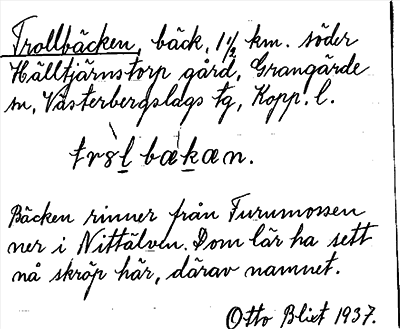 Trollbäcken, bäck, 1 1/2 km. söder
Hälltjärnstorp gård, Grangärde
sn, Västerbergslags tg, Kopp. l.
trɷl bækæn.
Bäcken rinner från Furumossen
ner i Nittälven. Dom lär ha sett
nå skröp här, därav namnet.
Otto Blixt 1937.